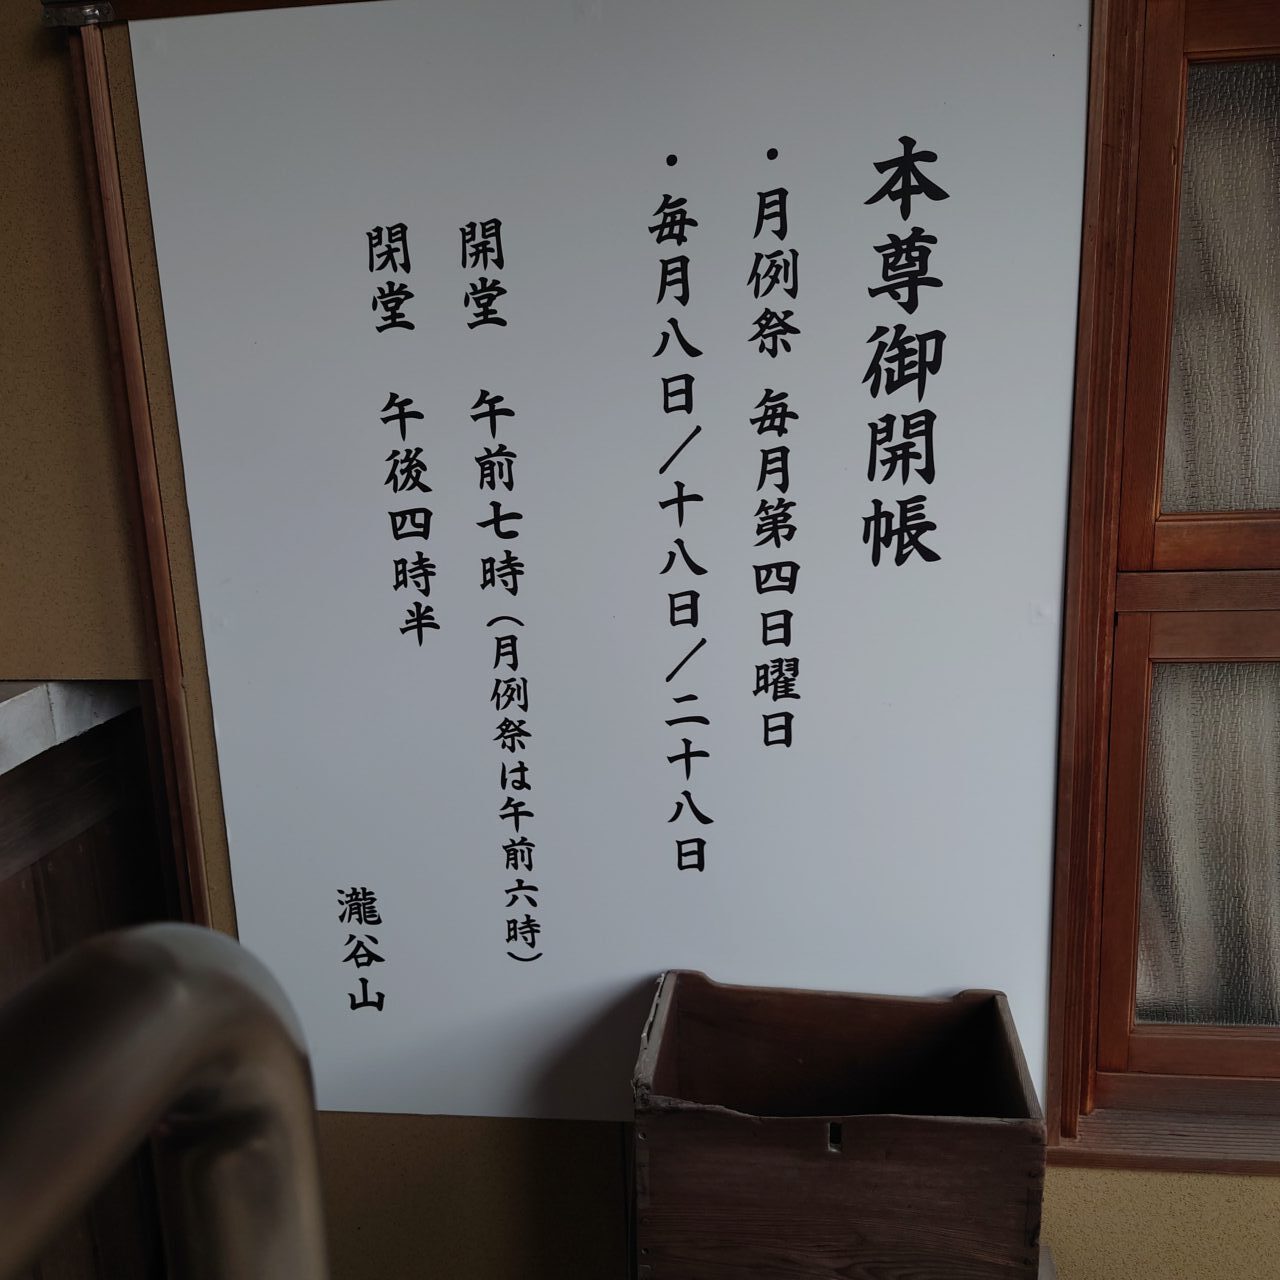 本尊御開帳
・月例祭 毎月第四日曜日
・毎月八日／十八日／二十八日
開堂 午前七時（月例祭は午前六時）
閉堂 午後四時半
瀧谷山